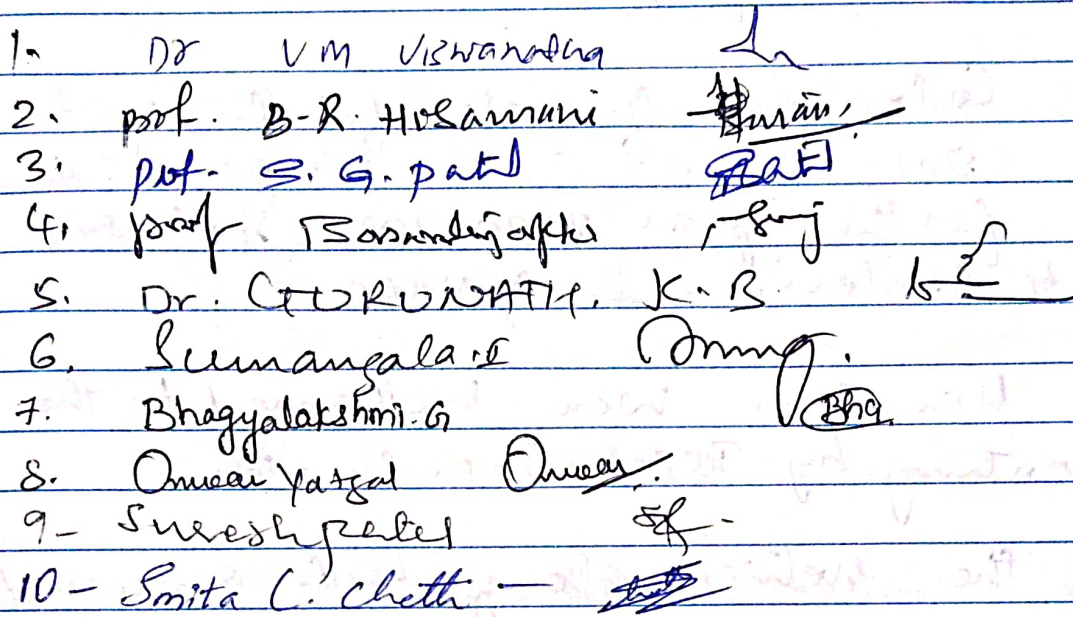 1. Dr VM Viswanatha
2. prof. B-R. Hosamani
3. prof. S. G. patil Patil
4, prof.
5. Dr. GURUNATH. K.B.
6, Sumangala.I
7. Bhagyalakshmi.G Bhg
8. Omkar Yatgal Omkar
9- Suresh patel
10- Smita C. Chetti -